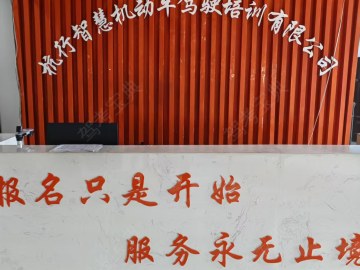 杭行智慧机动车驾驶培训有限公司
报名只是开始
服务永无止境